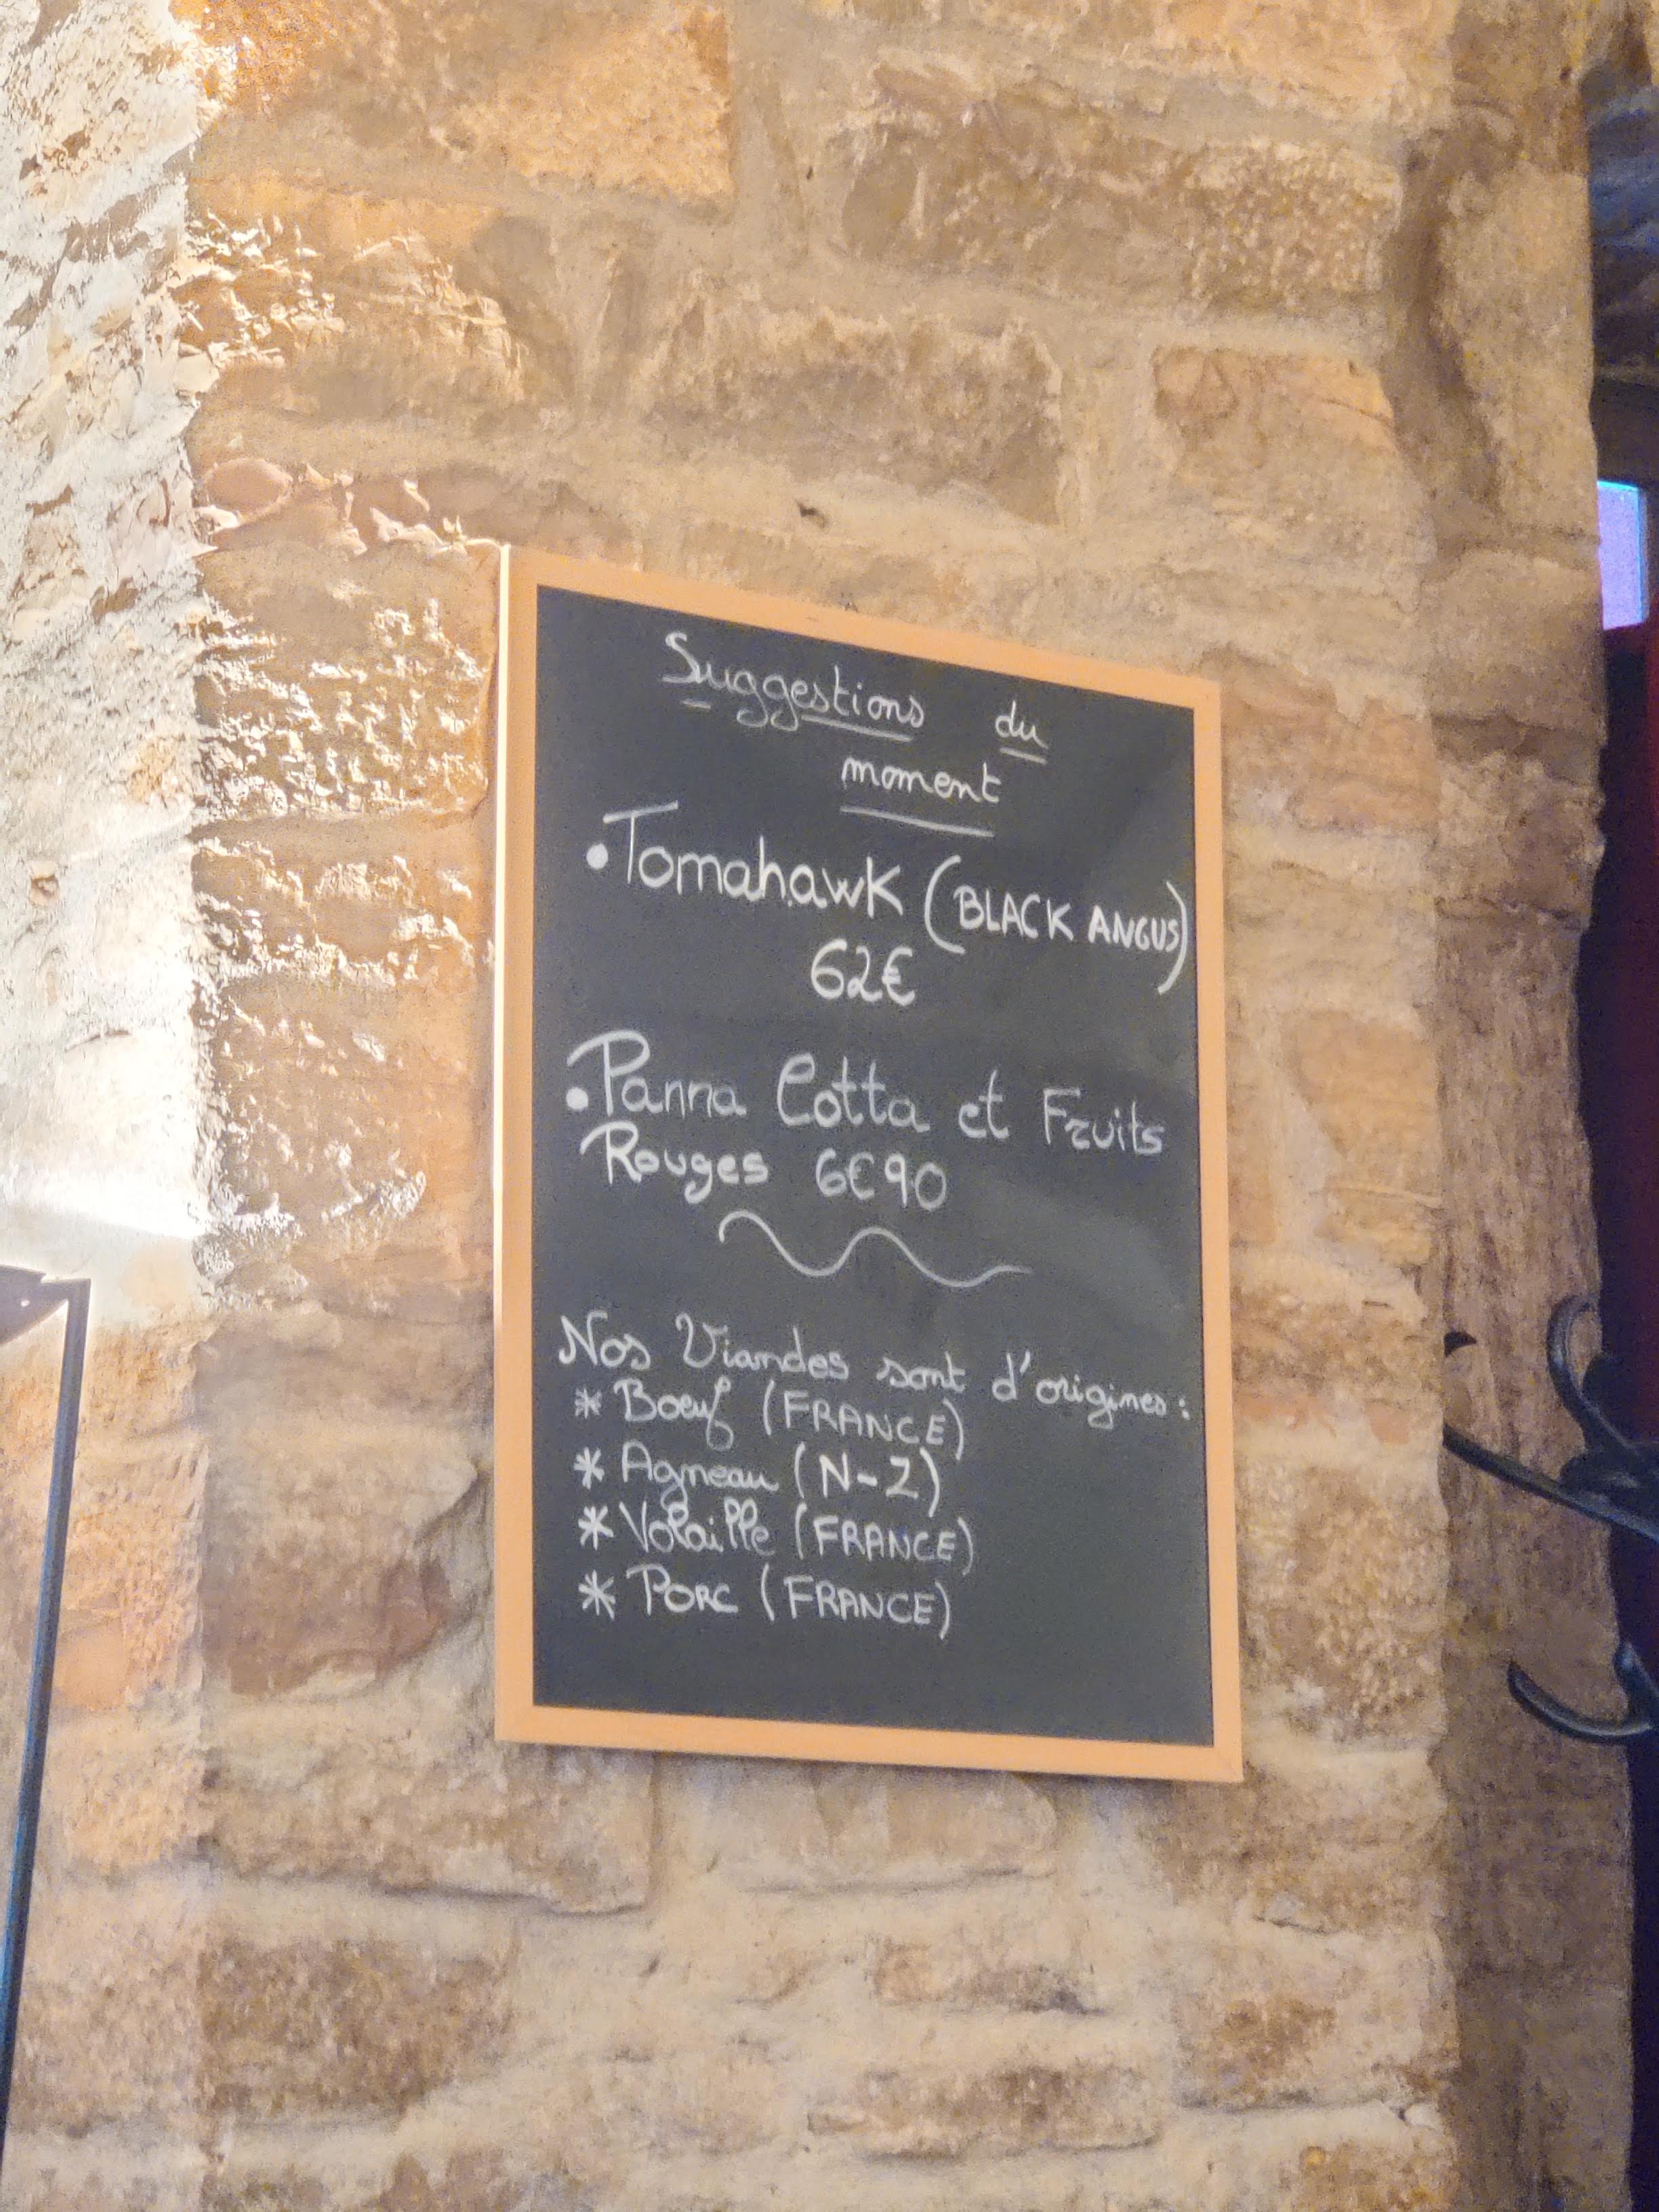 Suggestions du
moment
• Tomahawk (BLACK ANGUS)
62€
• Panna Cotta et Fruits
Rouges 6€90
Nos Viandes sont d'origines :
* Boeuf (FRANCE)
* Agneau (N-Z)
* Volaille (FRANCE)
* PORC (FRANCE)